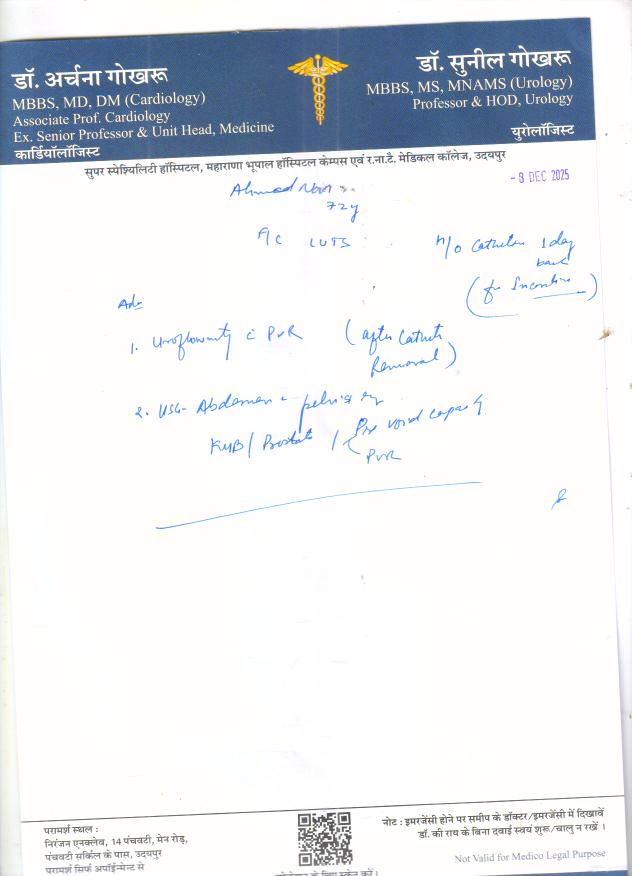 डॉ. अर्चना गोखरू
MBBS, MD, DM (Cardiology)
Associate Prof. Cardiology
Ex. Senior Professor & Unit Head, Medicine
कार्डियॉलॉजिस्ट
डॉ. सुनील गोखरू
MBBS, MS, MNAMS (Urology)
Professor & HOD, Urology
यूरोलॉजिस्ट
सुपर स्पेश्यिलिटी हॉस्पिटल, महाराणा भूपाल हॉस्पिटल केम्पस एवं र.ना.टै. मेडिकल कॉलेज, उदयपुर
DEC 2025
Ahmad
72y
LUTS
H/O Catheter 1 day
back
(for Incontine
Adv
1. Uroflowmetry c̄ PVR (after Catheter
Removal)
2. USG- Abdomen & pelvis
KUB / Prostate / Pre void capacity
PVR
परामर्श स्थल :
निरंजन एनक्लेव, 14 पंचवटी, मेन रोड़,
पंचवटी सर्किल के पास, उदयपुर
परामर्श सिर्फ अपॉईन्मेन्ट से
नोट : इमरजेंसी होने पर समीप के डॉक्टर/इमरजेंसी में दिखावें
डॉ. की राय के बिना दवाई स्वयं शुरू/चालु न रखें ।
Not Valid for Medico Legal Purpose